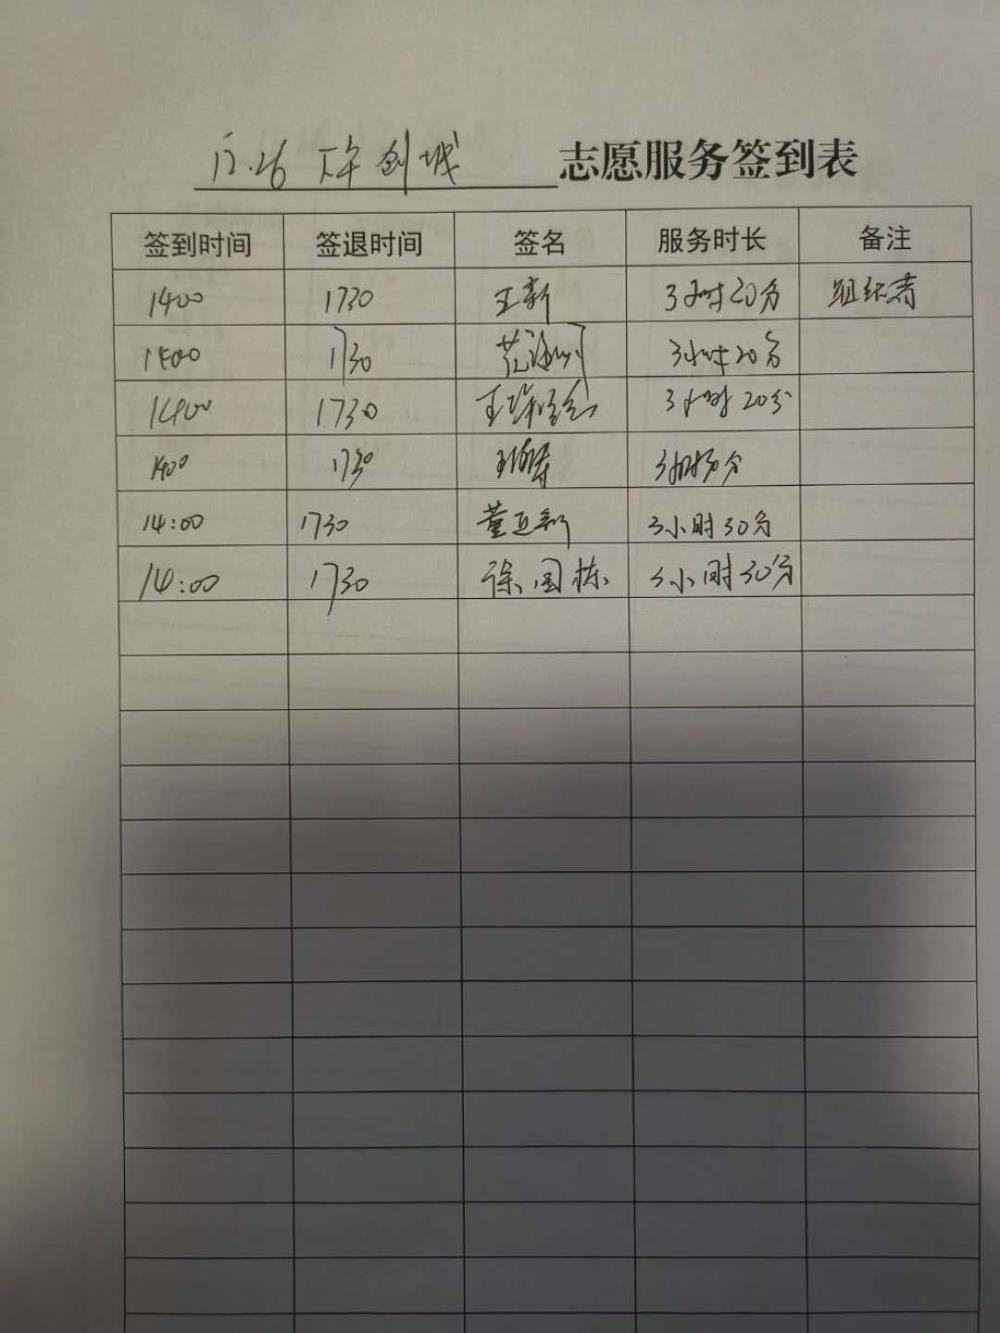 12.26 下午 创城 志愿服务签到表
签到时间 签退时间 签名 服务时长 备注
1400 1730 王新 3小时20分 组织者
1400 1730 3小时20分
1400 1730 3小时20分
1400 1730
14:00 1730 董亚新 3小时30分
14:00 1730 徐国栋 3小时30分